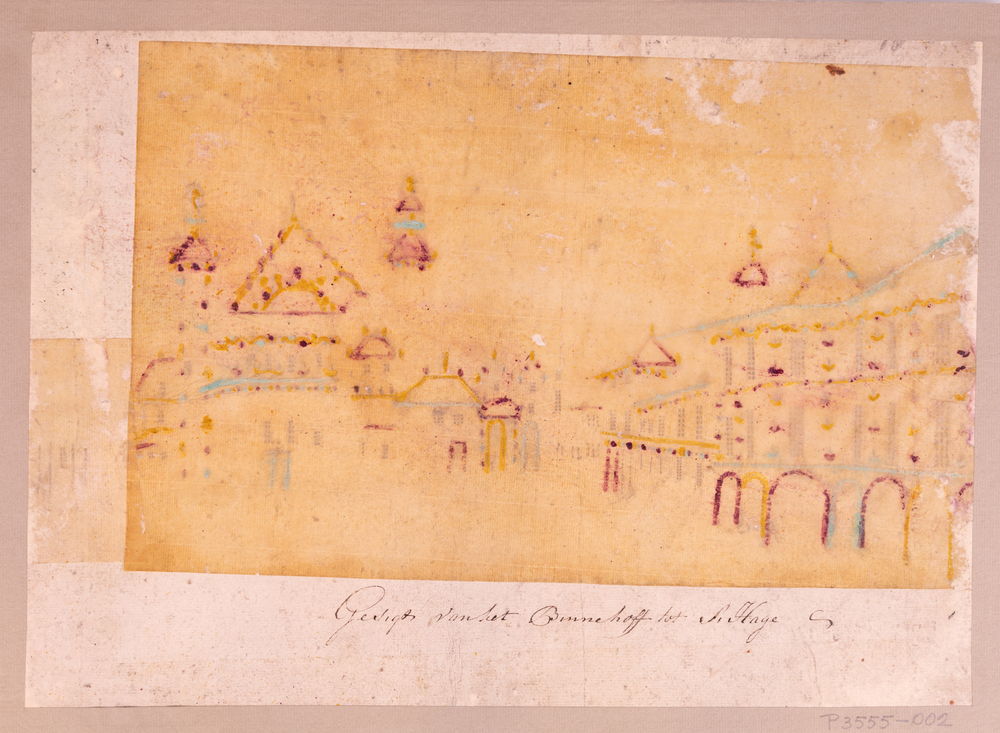 Gesigt van het Binnehoff tot s'Hage
P3555-002